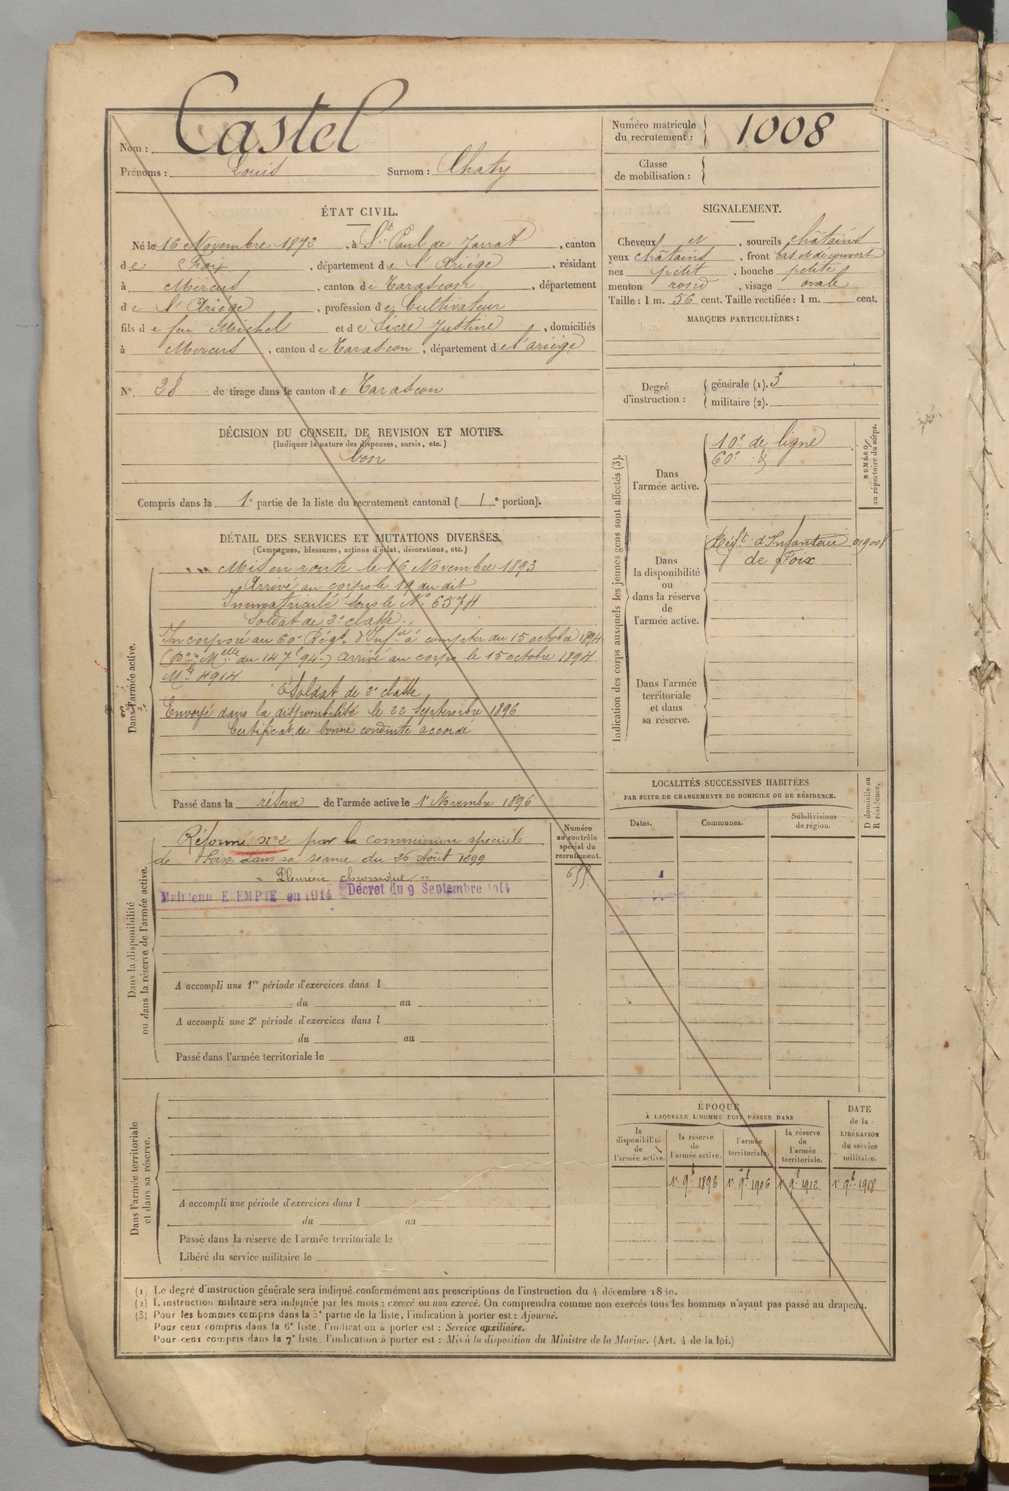 Nom : Castel
Prénoms : Louis Surnom : Chaty
Numéro matricule du recrutement : 1008
Classe de mobilisation :
ÉTAT CIVIL.
Né le 16 Novembre 1872, à St Paul de Jarrat, canton
de Foix, département de l'Ariège, résidant
à Mercus, canton de Tarascon, département
de l'Ariège, profession de Cultivateur
fils de feu Michel et de Sicre Justine, domiciliés
à Mercus, canton de Tarascon, département de l'ariège
N° 28 de tirage dans le canton de Tarascon
DÉCISION DU CONSEIL DE REVISION ET MOTIFS.
(Indiquer la nature des dispenses, sursis, etc.)
bon
Compris dans la 1e partie de la liste du recrutement cantonal (1e portion).
SIGNALEMENT.
Cheveux et, sourcils châtains
yeux châtains, front bas et découvert
nez petit, bouche petite
menton rond, visage ovale
Taille : 1 m. 56 cent. Taille rectifiée : 1 m. cent.
MARQUES PARTICULIÈRES :
Degré d'instruction : générale (1). 3
militaire (2).
DÉTAIL DES SERVICES ET MUTATIONS DIVERSES.
(Campagnes, blessures, actions d'éclat, décorations, etc.)
Dans l'armée active.
Mis en route le 16 Novembre 1893
Arrivé au corps le 19 au dit
Immatriculé sous le N° 6574
Soldat de 2e classe
Incorporé au 60e Régt d'Infie à compter du 15 octobre 1894
(Don Melle du 14 7e 94) Arrivé au corps le 15 octobre 1894
Mle 4914
Soldat de 2e classe
Envoyé dans la disponibilité le 22 Septembre 1896
Certificat de bonne conduite accordé
Passé dans la réserve de l'armée active le 1r Novembre 1896
Indication des corps auxquels les jeunes gens sont affectés (3).
NUMÉRO au répertoire du corps.
Dans l'armée active.
10e de ligne
60e d°
Dans la disponibilité ou dans la réserve de l'armée active.
Régt d'Infanterie
de Foix
Dans l'armée territoriale et dans sa réserve.
LOCALITÉS SUCCESSIVES HABITÉES
PAR SUITE DE CHANGEMENTS DE DOMICILE OU DE RÉSIDENCE.
Dates. Communes. Subdivisions de région. D domicile ou R résidence.
Dans la disponibilité ou dans la réserve de l'armée active.
Numéro au contrôle spécial du recrutement.
Réformé n° 2 par la commission spéciale
de Foix dans sa séance du 26 Août 1899
« Pleurésie chronique »
Maintenu EXEMPTÉ en 1914 Décret du 9 Septembre 1914
A accompli une 1re période d'exercices dans l
du au
A accompli une 2e période d'exercices dans l
du au
Passé dans l'armée territoriale le
Dans l'armée territoriale et dans sa réserve.
A accompli une période d'exercices dans l
du au
Passé dans la réserve de l'armée territoriale le
Libéré du service militaire le
ÉPOQUE
À LAQUELLE L'HOMME DOIT PASSER DANS
la disponibilité de l'armée active. la réserve de l'armée active. l'armée territoriale. la réserve de l'armée territoriale. DATE de la LIBÉRATION du service militaire.
1r 9b 1896 1r 9b 1906 1r 9b 1912 1r 9b 1918
(1) Le degré d'instruction générale sera indiqué conformément aux prescriptions de l'instruction du 4 décembre 1889.
(2) L'instruction militaire sera indiquée par les mots : exercé ou non exercé. On comprendra comme non exercés tous les hommes n'ayant pas passé au drapeau.
(3) Pour les hommes compris dans la 5e partie de la liste, l'indication à porter est : Ajourné.
Pour ceux compris dans la 6e liste, l'indication à porter est : Service auxiliaire.
Pour ceux compris dans la 7e liste, l'indication à porter est : Mis à la disposition du Ministre de la Marine. (Art. 4 de la loi.)